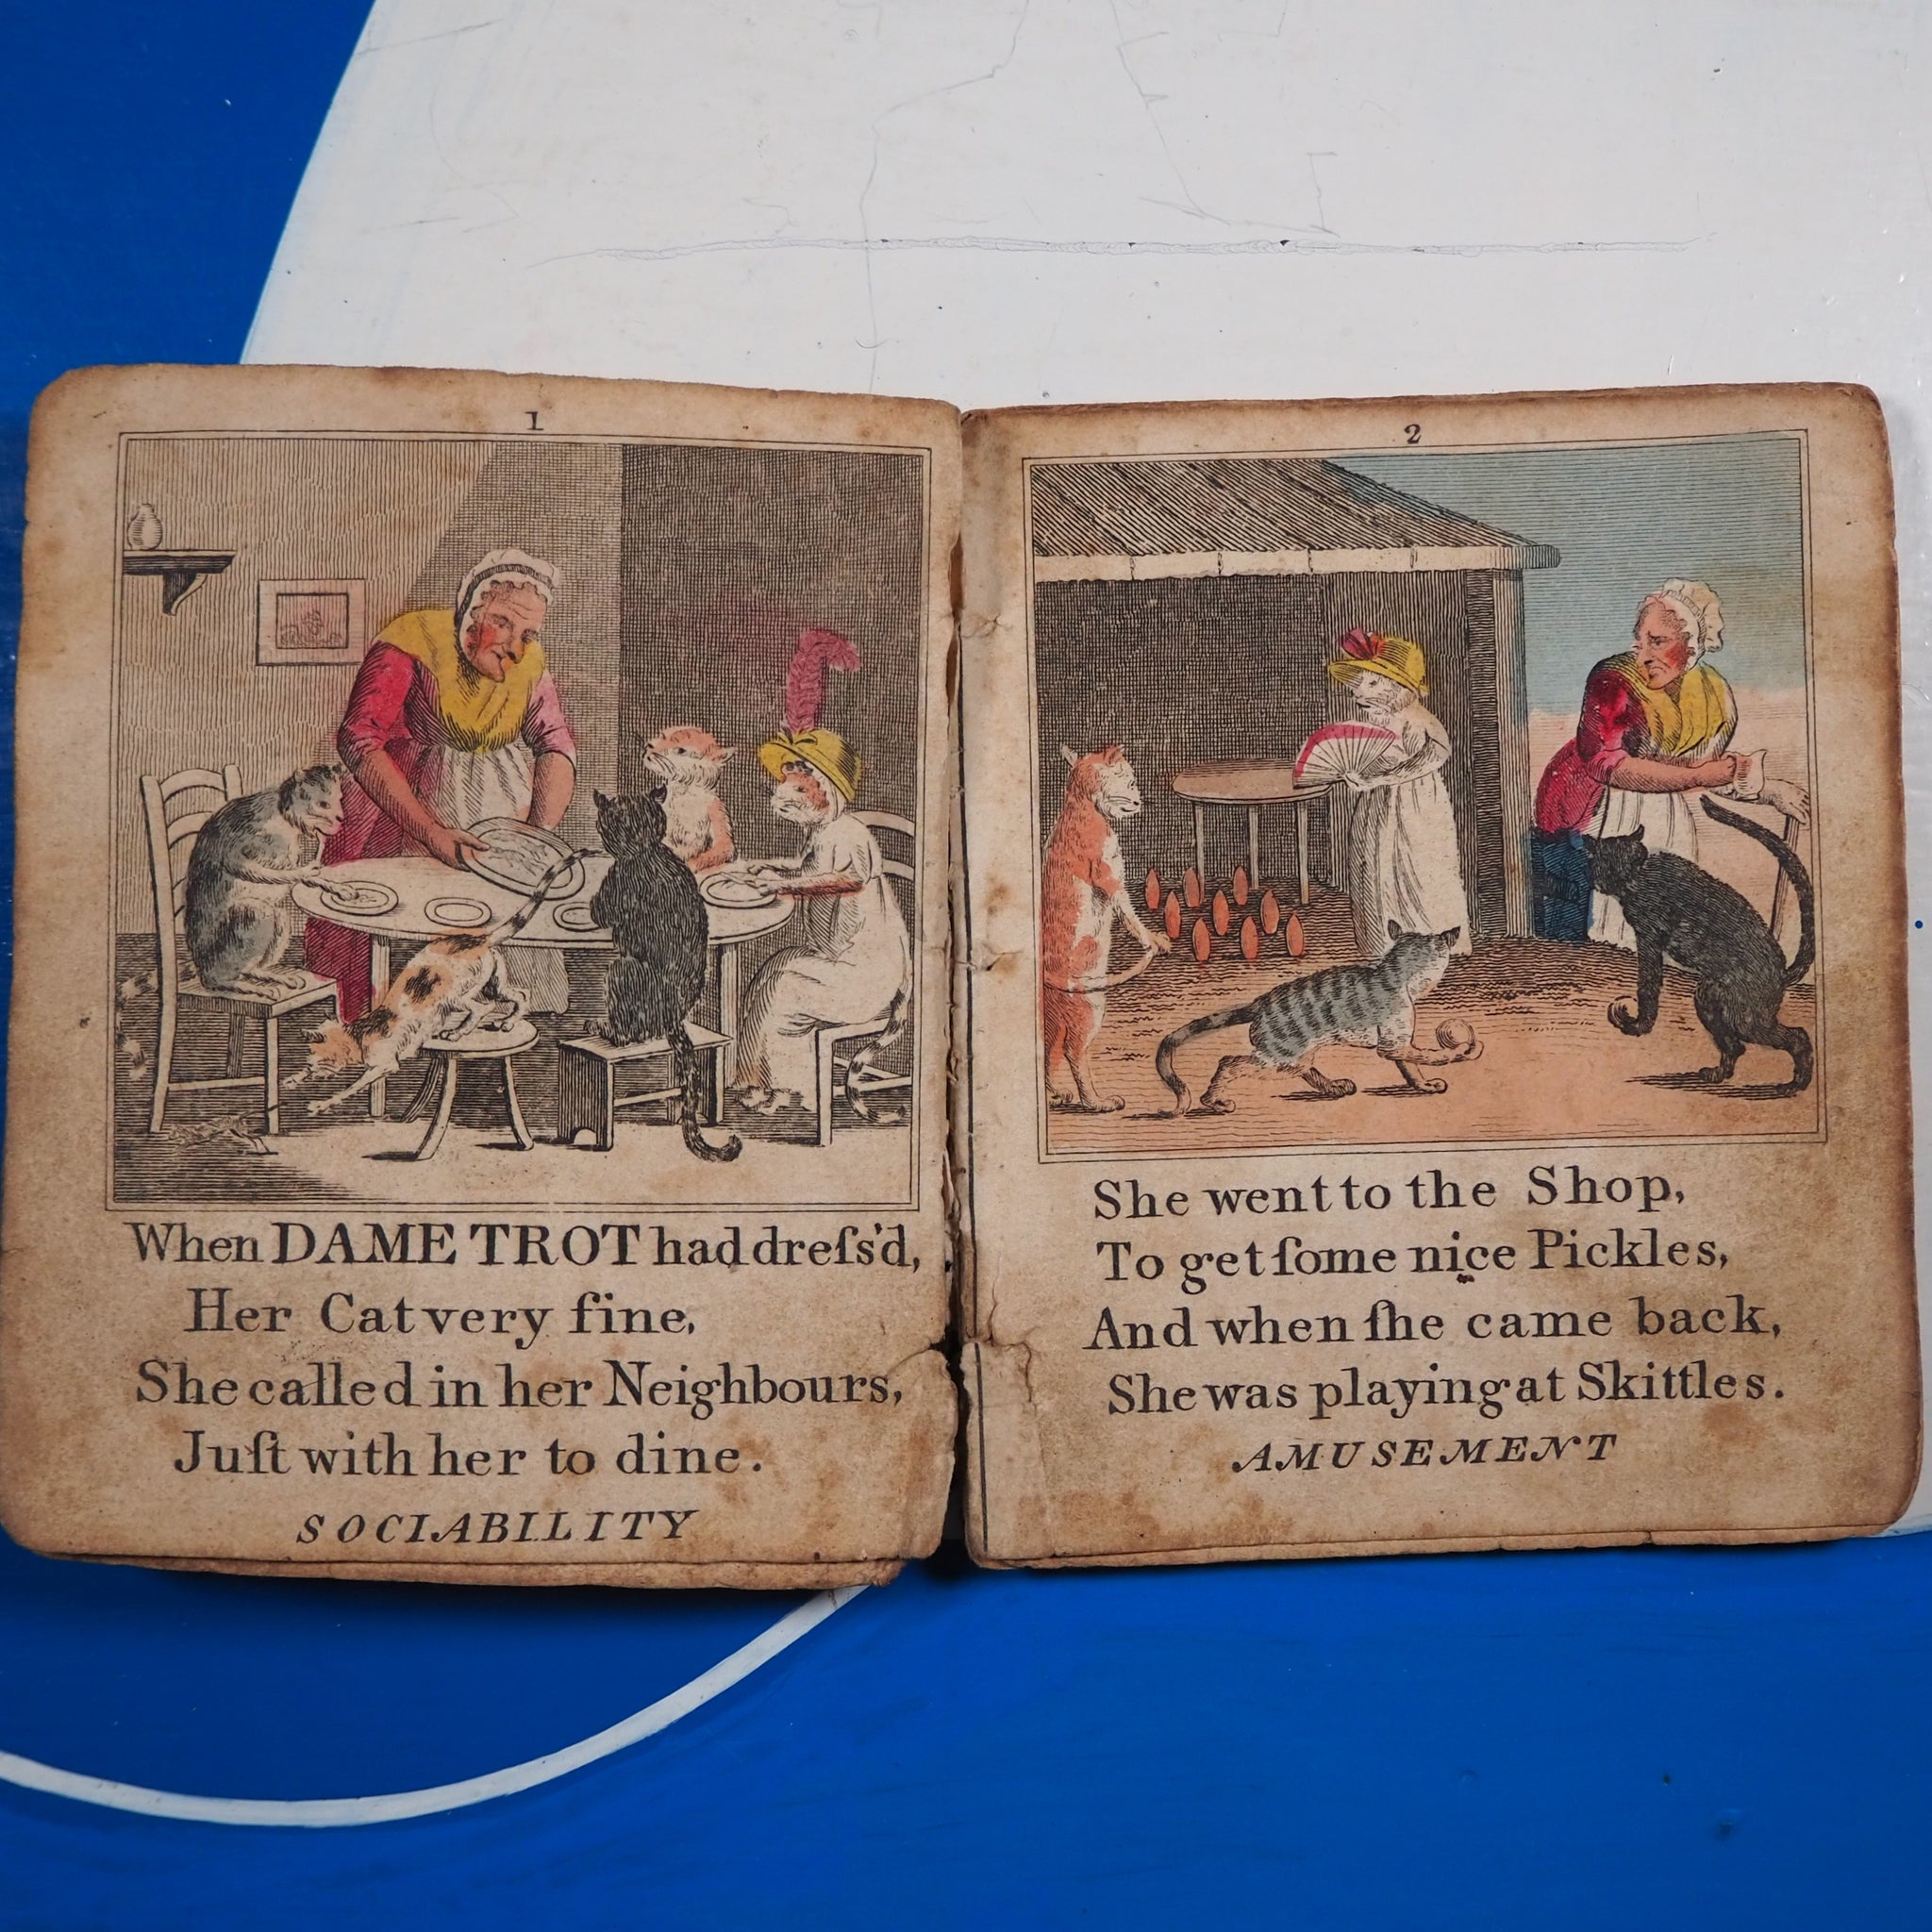 1
When DAME TROT had dreſs'd,
Her Cat very fine,
She called in her Neighbours,
Juſt with her to dine.
SOCIABILITY
2
She went to the Shop,
To get ſome nice Pickles,
And when ſhe came back,
She was playing at Skittles.
AMUSEMENT